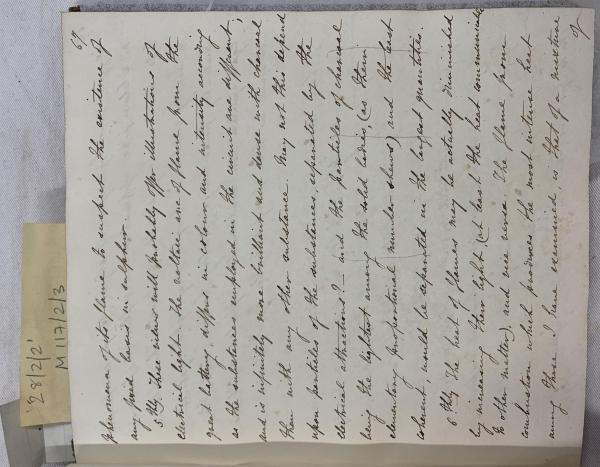 67
phenomena of its flame to suspect the existence of
any fixed basis in sulphur.
5thly These views will probably offer illustrations of
electrical light. The voltaic arc of flame from the
great battery differs in colour and intensity according
as the substances employed in the circuit are different,
and is infinitely more brilliant and dense with charcoal
than with any other substance. May not this depend
upon particles of the substances separated by the
electrical attractions? – and the particles of charcoal
being the lightest among the solid bodies, (as their
elementary proportional number shews) and the least
coherent, would be separated in the largest quantities.
6thly The heat of flames may be actually diminished
by increasing their light (at least the heat communicable
to other matter), and vice versa. The flame from
combustion which produces the most intense heat
among those I have examined, is that of a mixture
of
28/2/2'
M117/2/3